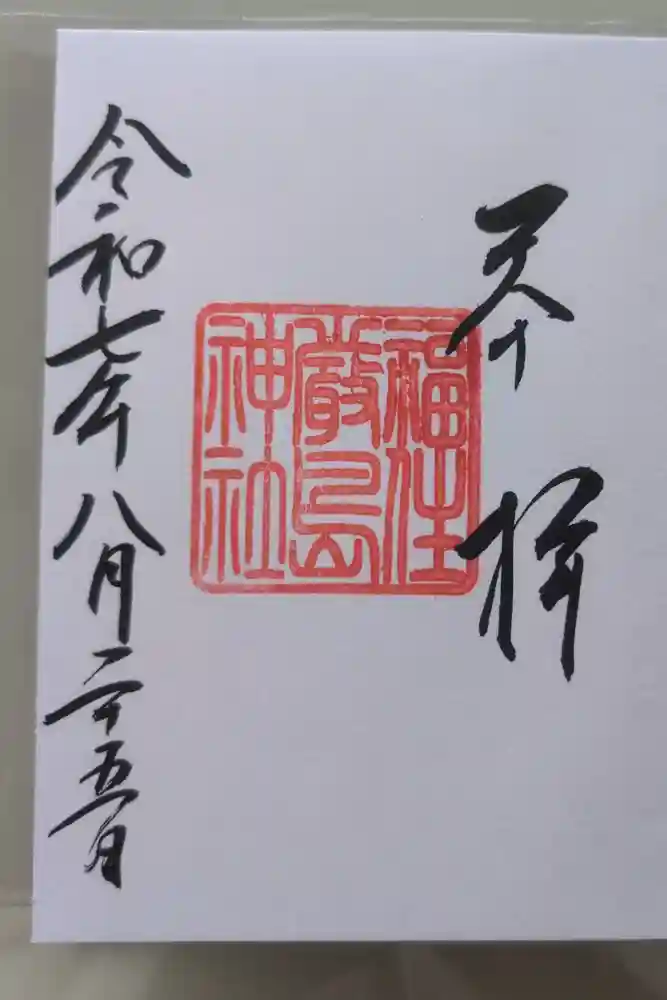 奉拝
福住
厳島
神社
令和七年八月二十五日